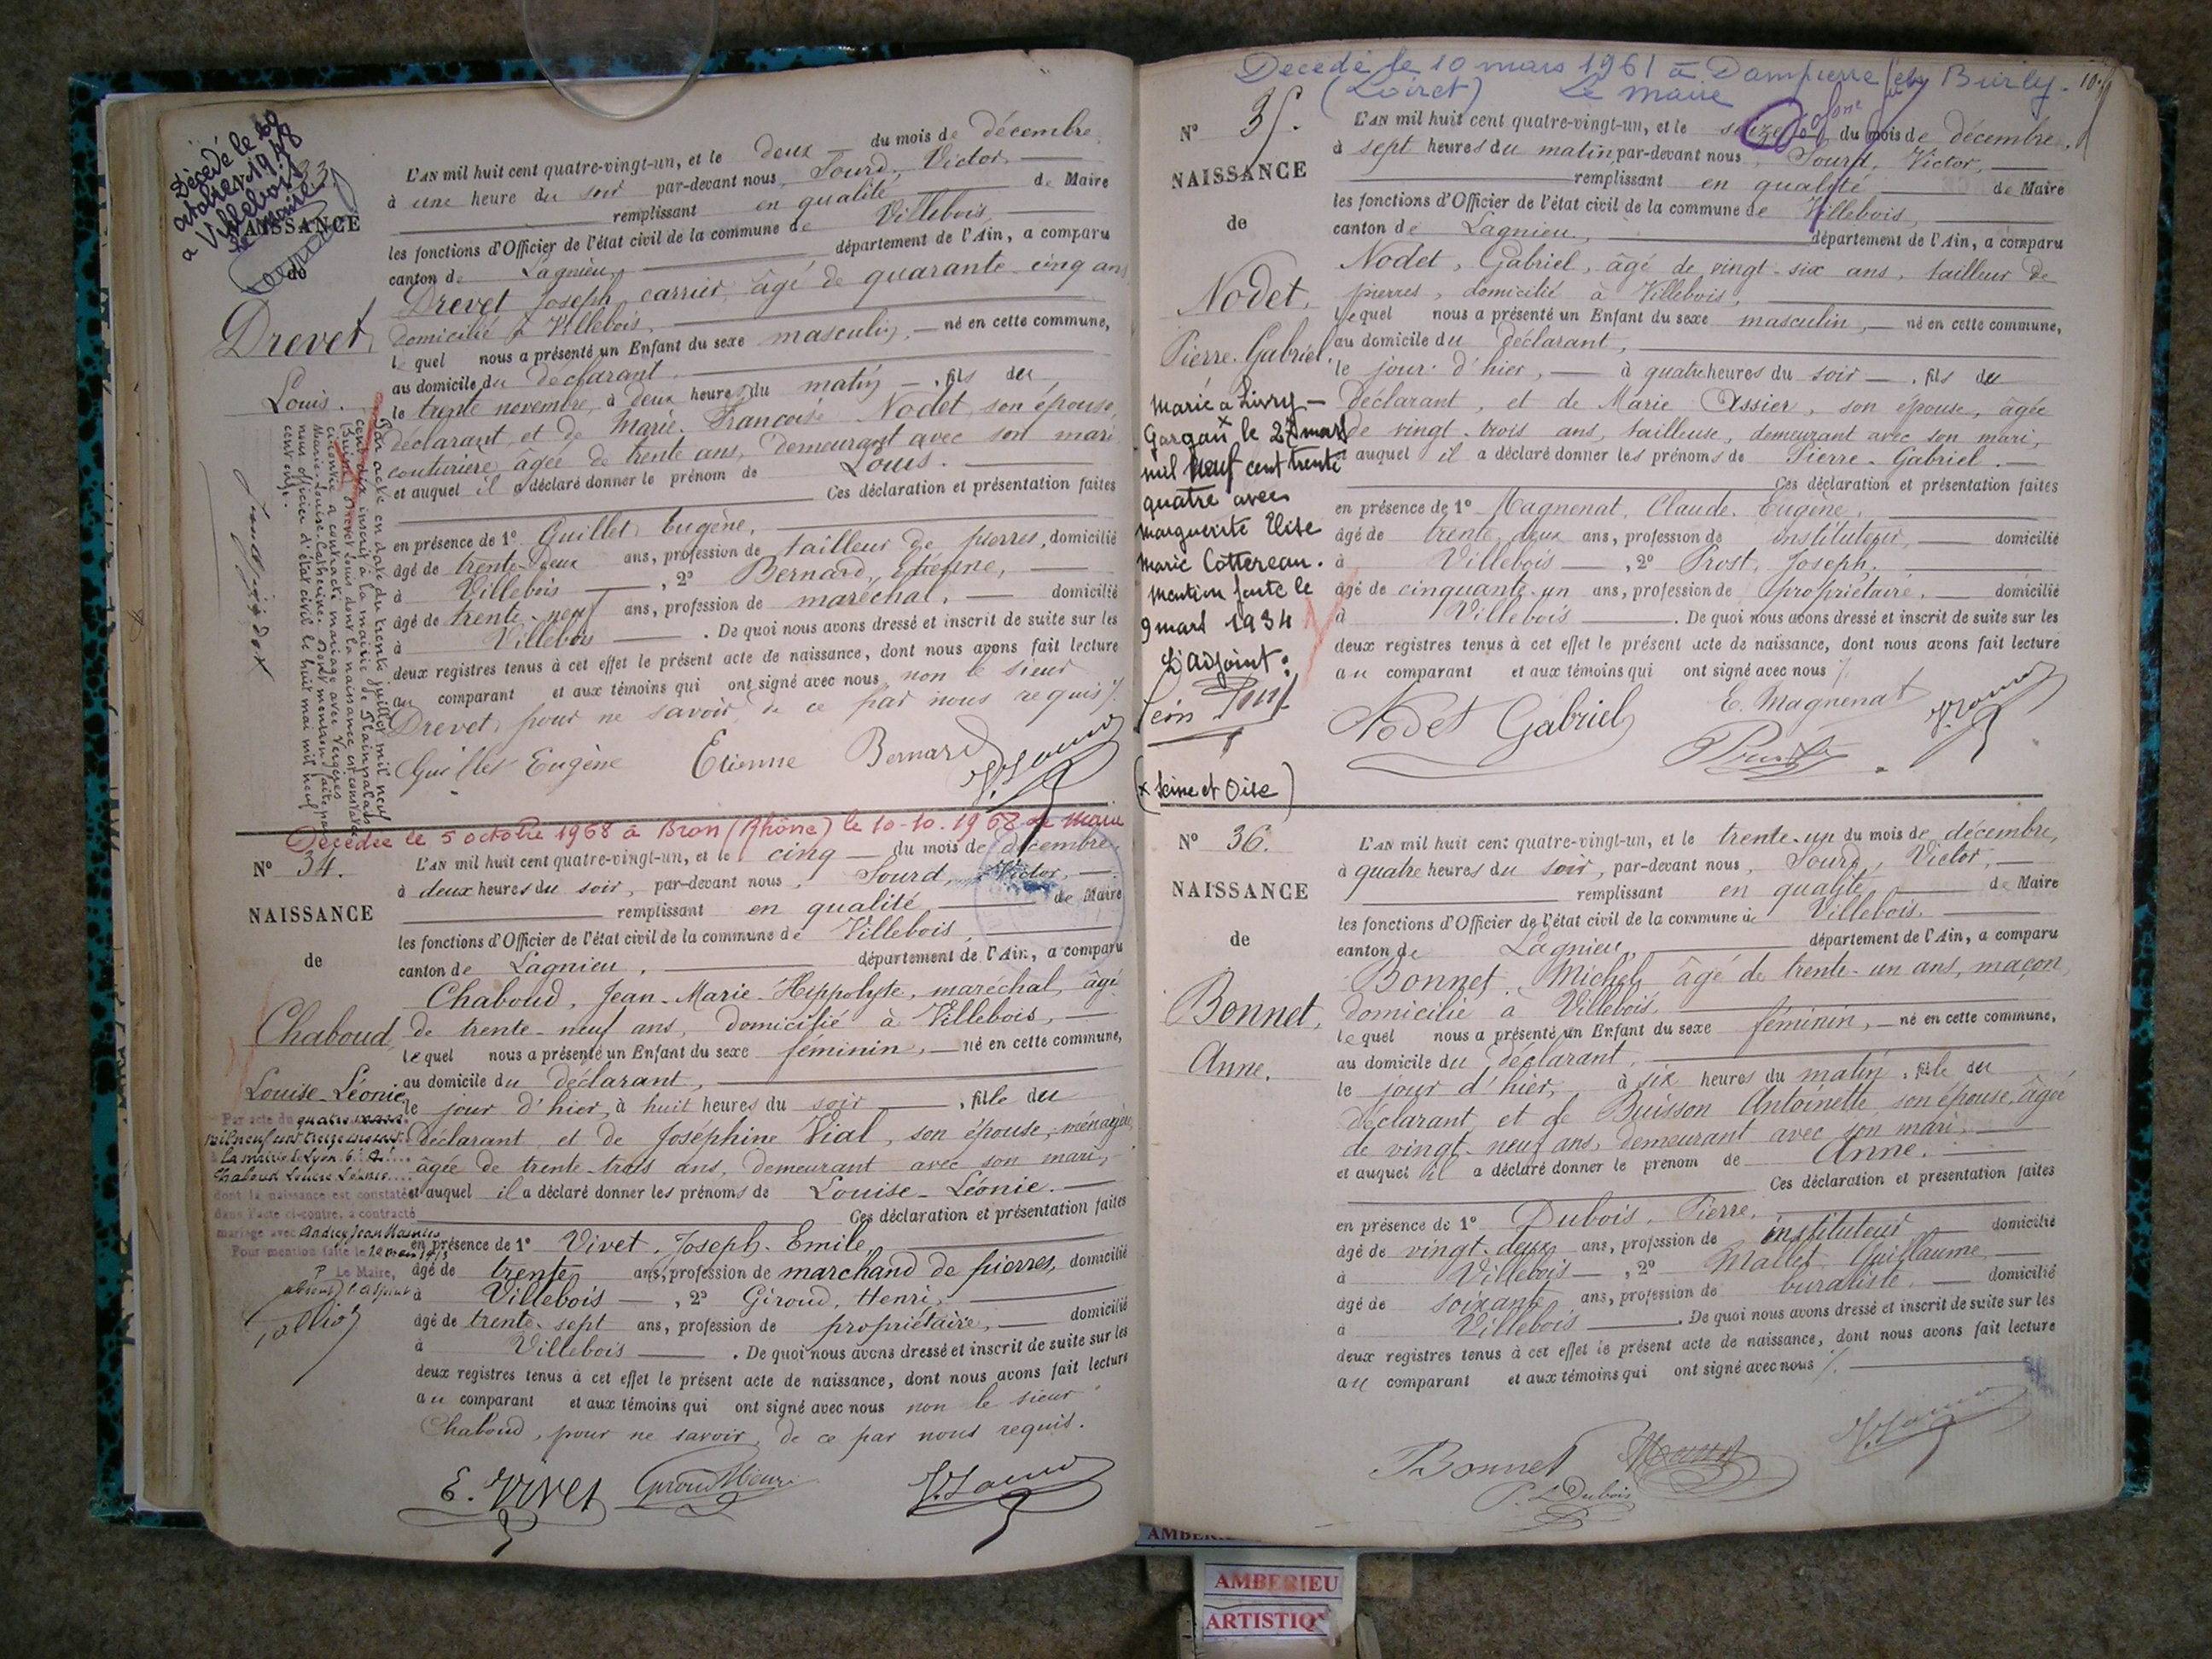 Décédé le
octobre 1948
a Villebois
Le Maire
33
NAISSANCE
de
Drevet,
Louis.
L'AN mil huit cent quatre-vingt-un, et le deux du mois de décembre,
à une heure du soir par-devant nous, Sourd, Victor,
remplissant en qualité de Maire
les fonctions d'Officier de l'état civil de la commune de Villebois,
canton de Lagnieu, département de l'Ain, a comparu
Drevet Joseph, carrier, âgé de quarante-cinq ans
domicilié à Villebois,
lequel nous a présenté un Enfant du sexe masculin, né en cette commune,
au domicile du déclarant.
le trente novembre, à deux heures du matin, fils du
déclarant, et de Marie-Françoise Nodet, son épouse,
couturière, âgée de trente ans, demeurant avec son mari
et auquel il a déclaré donner le prénom de Louis.
Ces déclaration et présentation faites
en présence de 1° Guillet, Eugène,
âgé de trente-deux ans, profession de tailleur de pierres, domicilié
à Villebois, 2° Bernard, Etienne,
âgé de trente-neuf ans, profession de maréchal, domicilié
à Villebois. De quoi nous avons dressé et inscrit de suite sur les
deux registres tenus à cet effet le présent acte de naissance, dont nous avons fait lecture
au comparant et aux témoins qui ont signé avec nous non le sieur
Drevet, pour ne savoir, de ce par nous requis %.
Guillet Eugène Etienne Bernard V. Sourd
Par acte en date du trente juillet mil neuf
cent dix inscrit à la mairie de Plainpalais
(Suisse) Drevet Louis dont la naissance est constatée
ci-contre a contracté mariage avec Vergères
Marie-Louise-Catherine. Dont mention faite par
nous officier d'état civil le huit mai mil neuf
cent onze.
Décédée le 5 octobre 1968 à Bron (Rhône) le 10-10-1968 le Maire
N° 34.
NAISSANCE
de
Chaboud,
Louise-Léonie
Par acte du quatre mars
mil neuf cent treize inscrit
à la mairie de Lyon 6e
Chaboud Louise Léonie
dont la naissance est constatée
dans l'acte ci-contre, a contracté
mariage avec
Pour mention faite le
Le Maire,
L'AN mil huit cent quatre-vingt-un, et le cinq du mois de décembre,
à deux heures du soir, par-devant nous, Sourd, Victor,
remplissant en qualité de Maire
les fonctions d'Officier de l'état civil de la commune de Villebois,
canton de Lagnieu, département de l'Ain, a comparu
Chaboud, Jean-Marie-Hippolyte, maréchal, âgé
de trente-neuf ans, domicilié à Villebois,
lequel nous a présenté un Enfant du sexe féminin, né en cette commune,
au domicile du déclarant,
le jour d'hier, à huit heures du soir, fille du
déclarant, et de Joséphine Vial, son épouse, ménagère,
âgée de trente-trois ans, demeurant avec son mari,
et auquel il a déclaré donner les prénoms de Louise-Léonie.
Ces déclaration et présentation faites
en présence de 1° Vivet, Joseph-Emile,
âgé de trente ans, profession de marchand de pierres, domicilié
à Villebois, 2° Giroud, Henri,
âgé de trente-sept ans, profession de propriétaire, domicilié
à Villebois. De quoi nous avons dressé et inscrit de suite sur les
deux registres tenus à cet effet le présent acte de naissance, dont nous avons fait lecture
au comparant et aux témoins qui ont signé avec nous non le sieur
Chaboud, pour ne savoir, de ce par nous requis.
E. Vivet Giroud Henri V. Sourd
Décédé le 10 mars 1961 à Dampierre en Burly.
(Loiret) Le Maire
N° 35.
NAISSANCE
de
Nodet,
Pierre-Gabriel.
Marié à Livry-
Gargan x le 27 mars
mil neuf cent trente
quatre avec
Marguerite Elise
Marie Cottereau.
Mention faite le
9 mars 1934
L'adjoint:
(x Seine et Oise)
L'AN mil huit cent quatre-vingt-un, et le seize du mois de décembre,
à sept heures du matin, par-devant nous, Sourd, Victor,
remplissant en qualité de Maire
les fonctions d'Officier de l'état civil de la commune de Villebois,
canton de Lagnieu, département de l'Ain, a comparu
Nodet, Gabriel, âgé de vingt-six ans, tailleur de
pierres, domicilié à Villebois,
lequel nous a présenté un Enfant du sexe masculin, né en cette commune,
au domicile du déclarant,
le jour d'hier, à quatre heures du soir, fils du
déclarant, et de Marie Assier, son épouse, âgée
de vingt-trois ans, tailleuse, demeurant avec son mari,
et auquel il a déclaré donner les prénoms de Pierre-Gabriel.
Ces déclaration et présentation faites
en présence de 1° Magnenat, Claude-Eugène,
âgé de trente-deux ans, profession de instituteur, domicilié
à Villebois, 2° Prost, Joseph,
âgé de cinquante-un ans, profession de propriétaire, domicilié
à Villebois. De quoi nous avons dressé et inscrit de suite sur les
deux registres tenus à cet effet le présent acte de naissance, dont nous avons fait lecture
au comparant et aux témoins qui ont signé avec nous %
Nodet Gabriel E. Magnenat V. Sourd
Prost
N° 36.
NAISSANCE
de
Bonnet,
Anne.
L'AN mil huit cent quatre-vingt-un, et le trente-un du mois de décembre,
à quatre heures du soir, par-devant nous, Sourd, Victor,
remplissant en qualité de Maire
les fonctions d'Officier de l'état civil de la commune de Villebois.
canton de Lagnieu, département de l'Ain, a comparu
Bonnet, Michel, âgé de trente-un ans, maçon,
domicilié à Villebois,
lequel nous a présenté un Enfant du sexe féminin, né en cette commune,
au domicile du déclarant,
le jour d'hier, à six heures du matin, fille du
déclarant, et de Buisson Antoinette, son épouse, âgée
de vingt-neuf ans, demeurant avec son mari,
et auquel il a déclaré donner le prénom de Anne.
Ces déclaration et présentation faites
en présence de 1° Dubois, Pierre,
âgé de vingt-deux ans, profession de instituteur domicilié
à Villebois, 2° Mallet, Guillaume,
âgé de soixante ans, profession de buraliste, domicilié
à Villebois. De quoi nous avons dressé et inscrit de suite sur les
deux registres tenus à cet effet le présent acte de naissance, dont nous avons fait lecture
au comparant et aux témoins qui ont signé avec nous %.
Bonnet V. Sourd
P. Dubois
AMBERIEU
ARTISTIQ